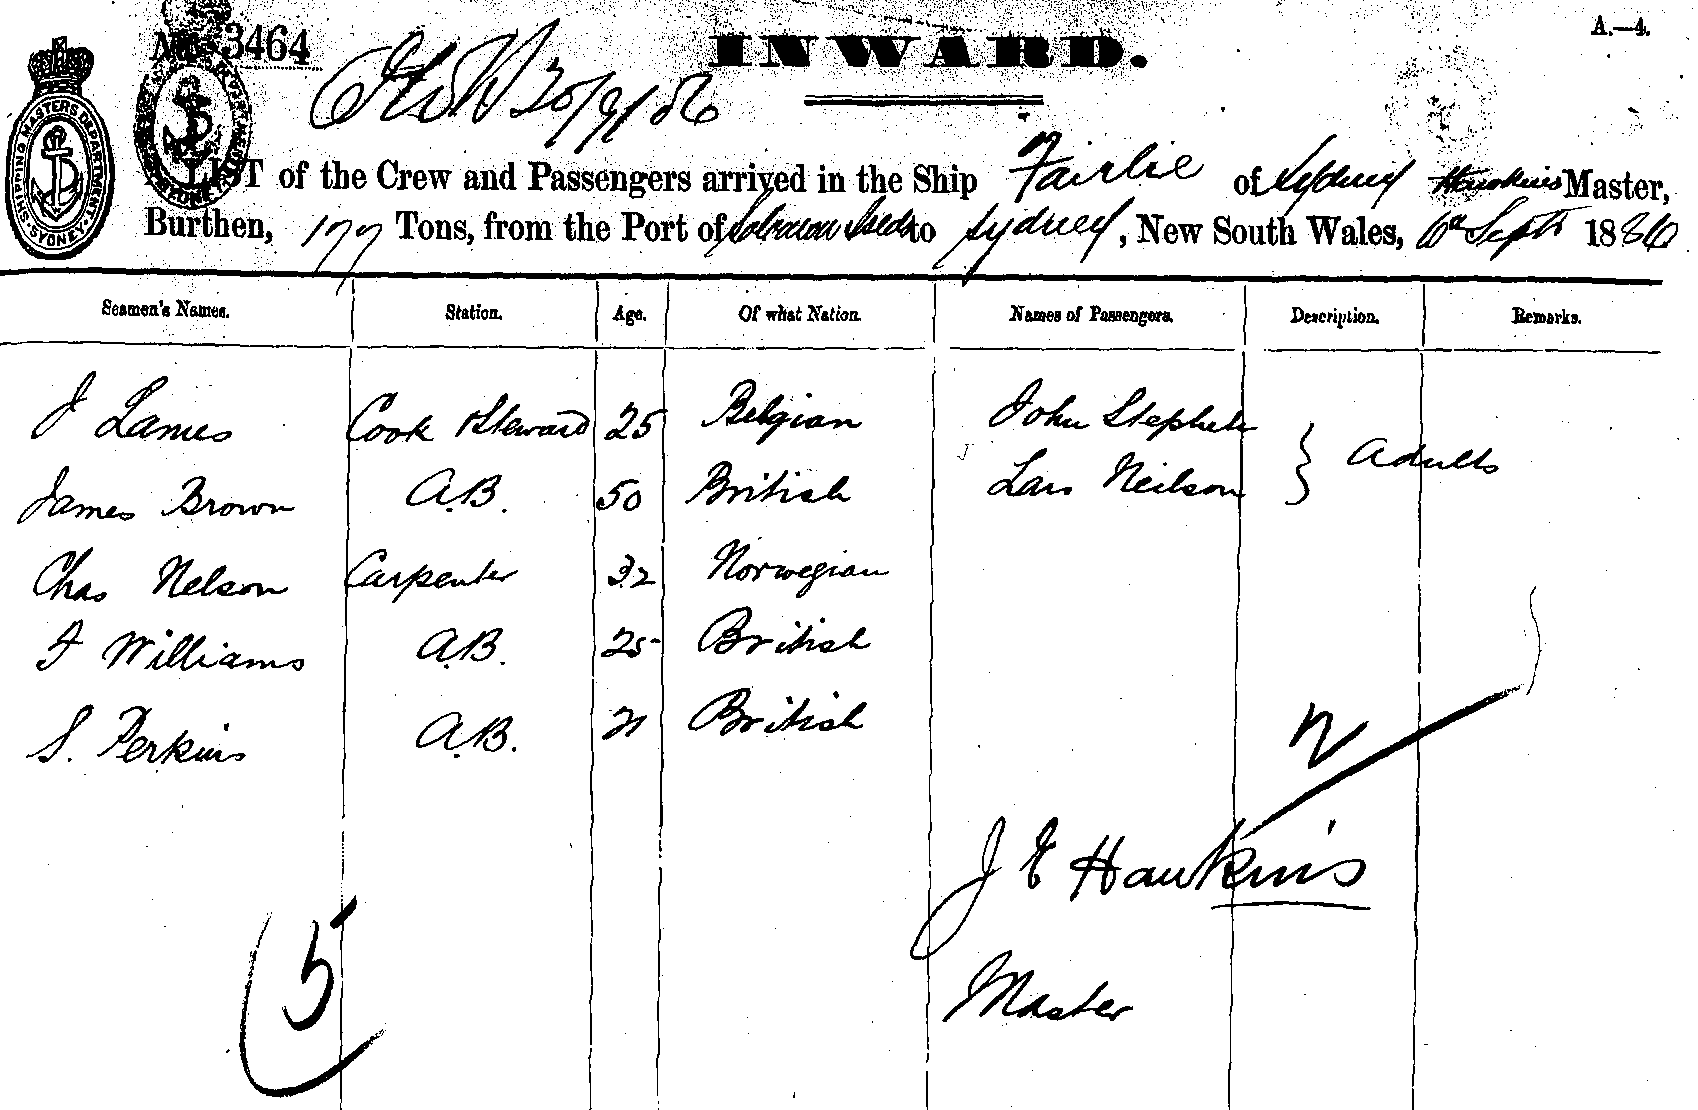 No. 3464
INWARD.
A.—4.
20/9/86
SHIPPING MASTERS DEPARTMENT SYDNEY
LIST of the Crew and Passengers arrived in the Ship Fairlie of Sydney Hawkins Master,
Burthen, 177 Tons, from the Port of Solomon Islds to Sydney, New South Wales, 6th Sept 1886
Seamen's Names. Station. Age. Of what Nation. Names of Passengers. Description. Remarks.
J Lames Cook & Steward 25 Belgian John Stephen
James Brown A.B. 50 British Lars Neilson } Adults
Chas Nelson Carpenter 32 Norwegian
F Williams A.B. 25 British
S. Perkins A.B. 21 British
J E Hawkins
5
Master